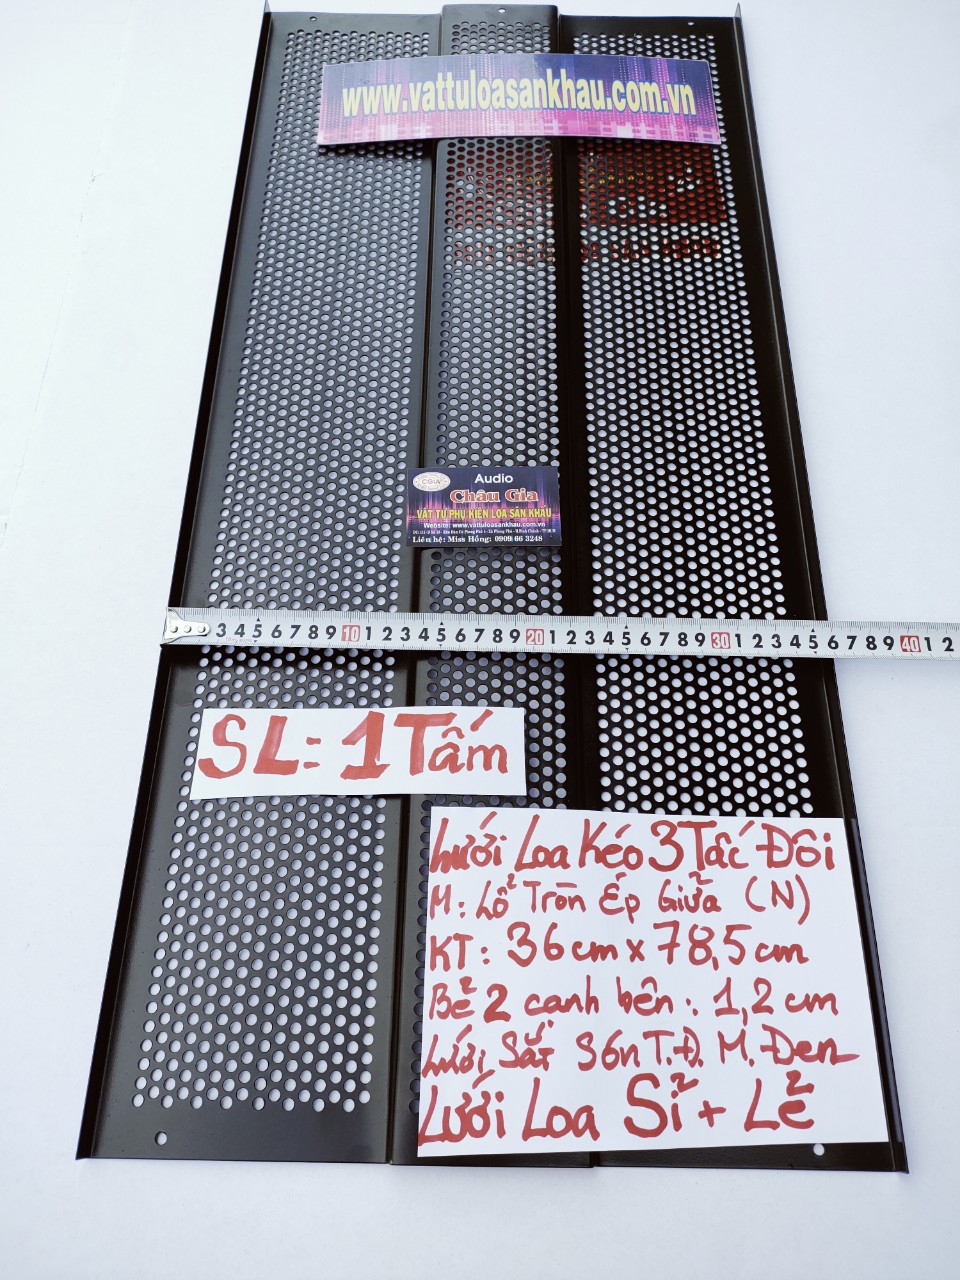 www.vattuloasankhau.com.vn
CGIA
Audio
Châu Gia
VẬT TƯ PHỤ KIỆN LOA SÂN KHẤU
Website: www.vattuloasankhau.com.vn
Liên hệ: Miss Hồng: 0909 66 3248
3 4 5 6 7 8 9 10 1 2 3 4 5 6 7 8 9 20 1 2 3 4 5 6 7 8 9 30 1 2 3 4 5 6 7 8 9 40 1 2
SL: 1 Tấm
Lưới Loa Kéo 3 Tấc Đôi
M: Lỗ Tròn Ép Giữa (N)
KT: 36cm x 78,5cm
Bẻ 2 cạnh bên: 1,2cm
Lưới Sắt Sơn T.Đ. M. Đen
Lưới Loa Sỉ + Lẻ